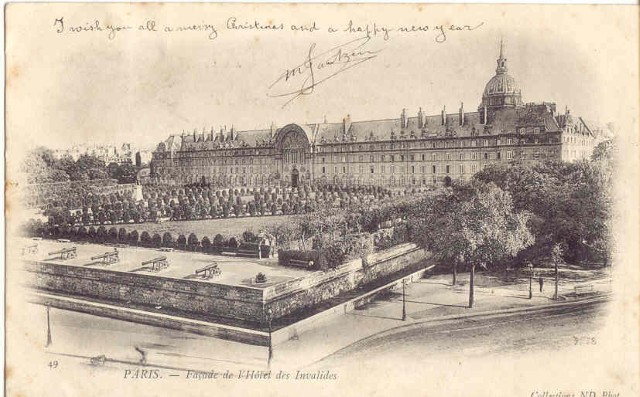 I wish you all a merry Christmas and a happy new year
49
PARIS. — Façade de l'Hôtel des Invalides
Collections ND Phot.